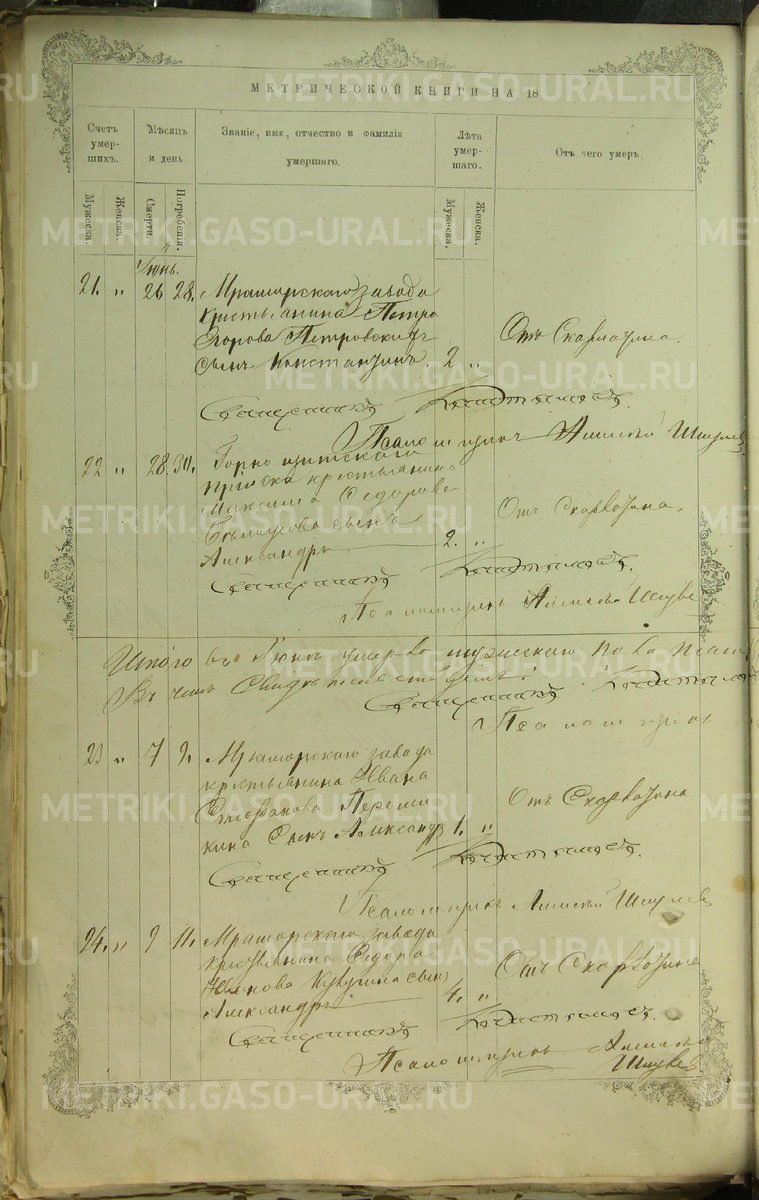 МЕТРИЧЕСКОЙ КНИГИ НА 18
Счетъ умер-шихъ.
Мѣсяцъ и день
Званіе, имя, отчество и фамилія умершаго.
Лѣта умер-шаго.
Отъ чего умеръ.
Мужеска. Женска. Смерти. Погребенія. Мужеска. Женска.
Іюнь.
21. „ 26 28. Мраморскаго завода
крестьянина Петра
Егорова Петровскихъ
Отъ Скарлатина.
сынъ Константинъ. 2 „
Священникъ
Псаломщикъ Алексѣй
22 „ 28. 30. Горнощитского
пріиска крестьянина
Максима Федорова
Отъ Скарлатина.
сынъ
Александръ 2. „
Священникъ
Псаломщикъ Алексѣй
Итого въ Іюнѣ умерло мужескаго пола
Въ чемъ Свидѣтельствуемъ:
Священникъ
Псаломщикъ
23 „ 7 9. Мраморскаго завода
крестьянина Ивана
Стефанова Переми
Отъ Скарлатина
кина Сынъ Александръ 1. „
Священникъ
Псаломщикъ Алексѣй
24. „ 9 11. Мраморскаго завода
крестьянина Федора
Отъ Скарлатина
Иванова сынъ
Александръ. 4. „
Священникъ
Псаломщикъ Алексѣй
METRIKI.GASO-URAL.RU